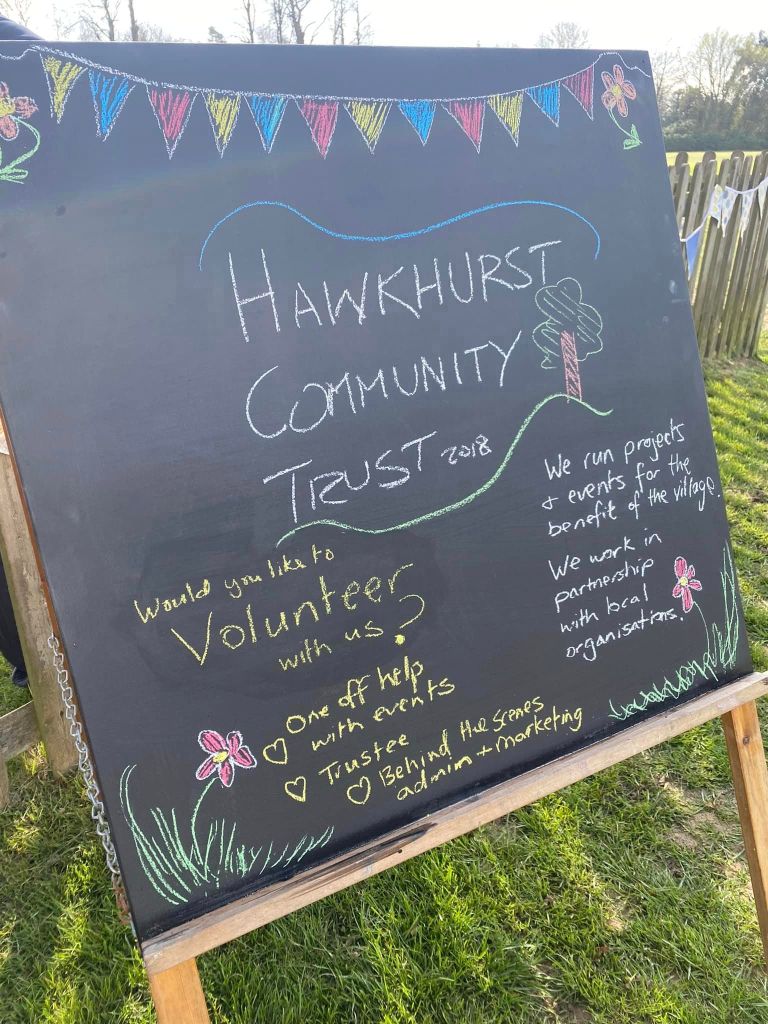 HAWKHURST
COMMUNITY
TRUST 2018
We run projects
+ events for the
benefit of the village.
We work in
partnership
with local
organisations.
Would you like to
Volunteer
with us?
One off help
with events
Trustee
Behind the Scenes
admin + marketing